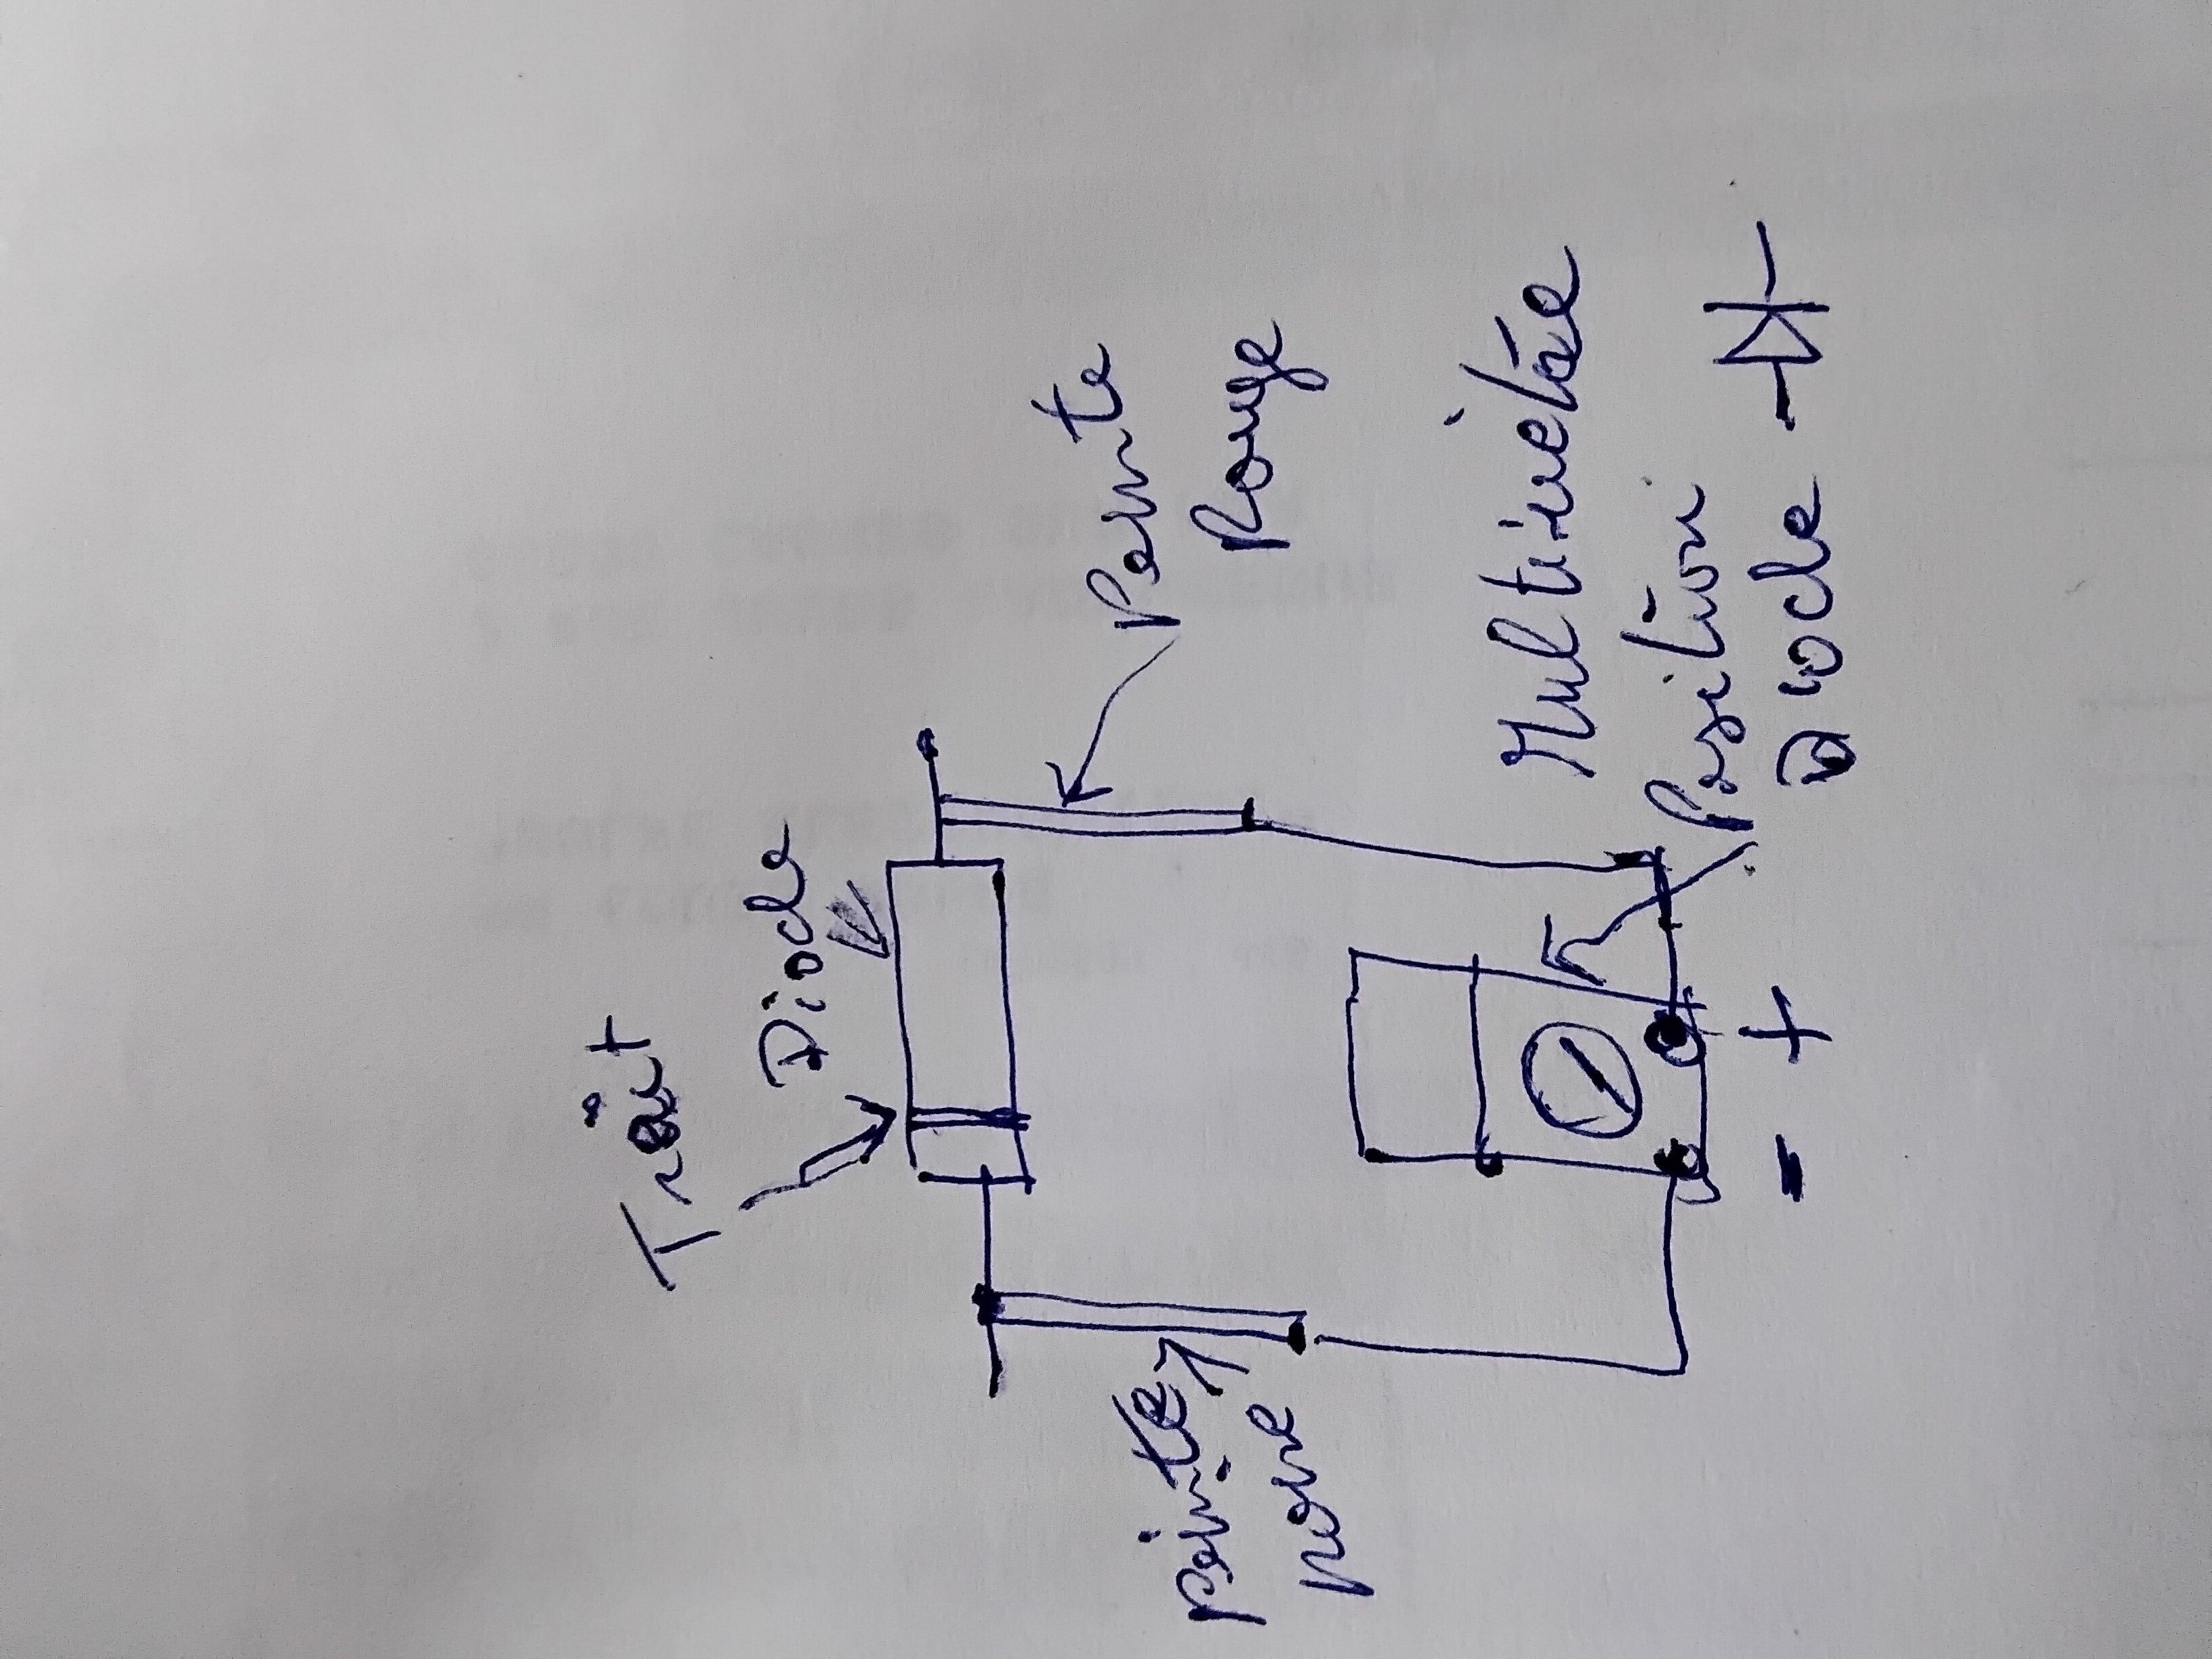 Trait
Diode
Pointe
Rouge
pointe
noire
Multimètre
Position
Diode
- +